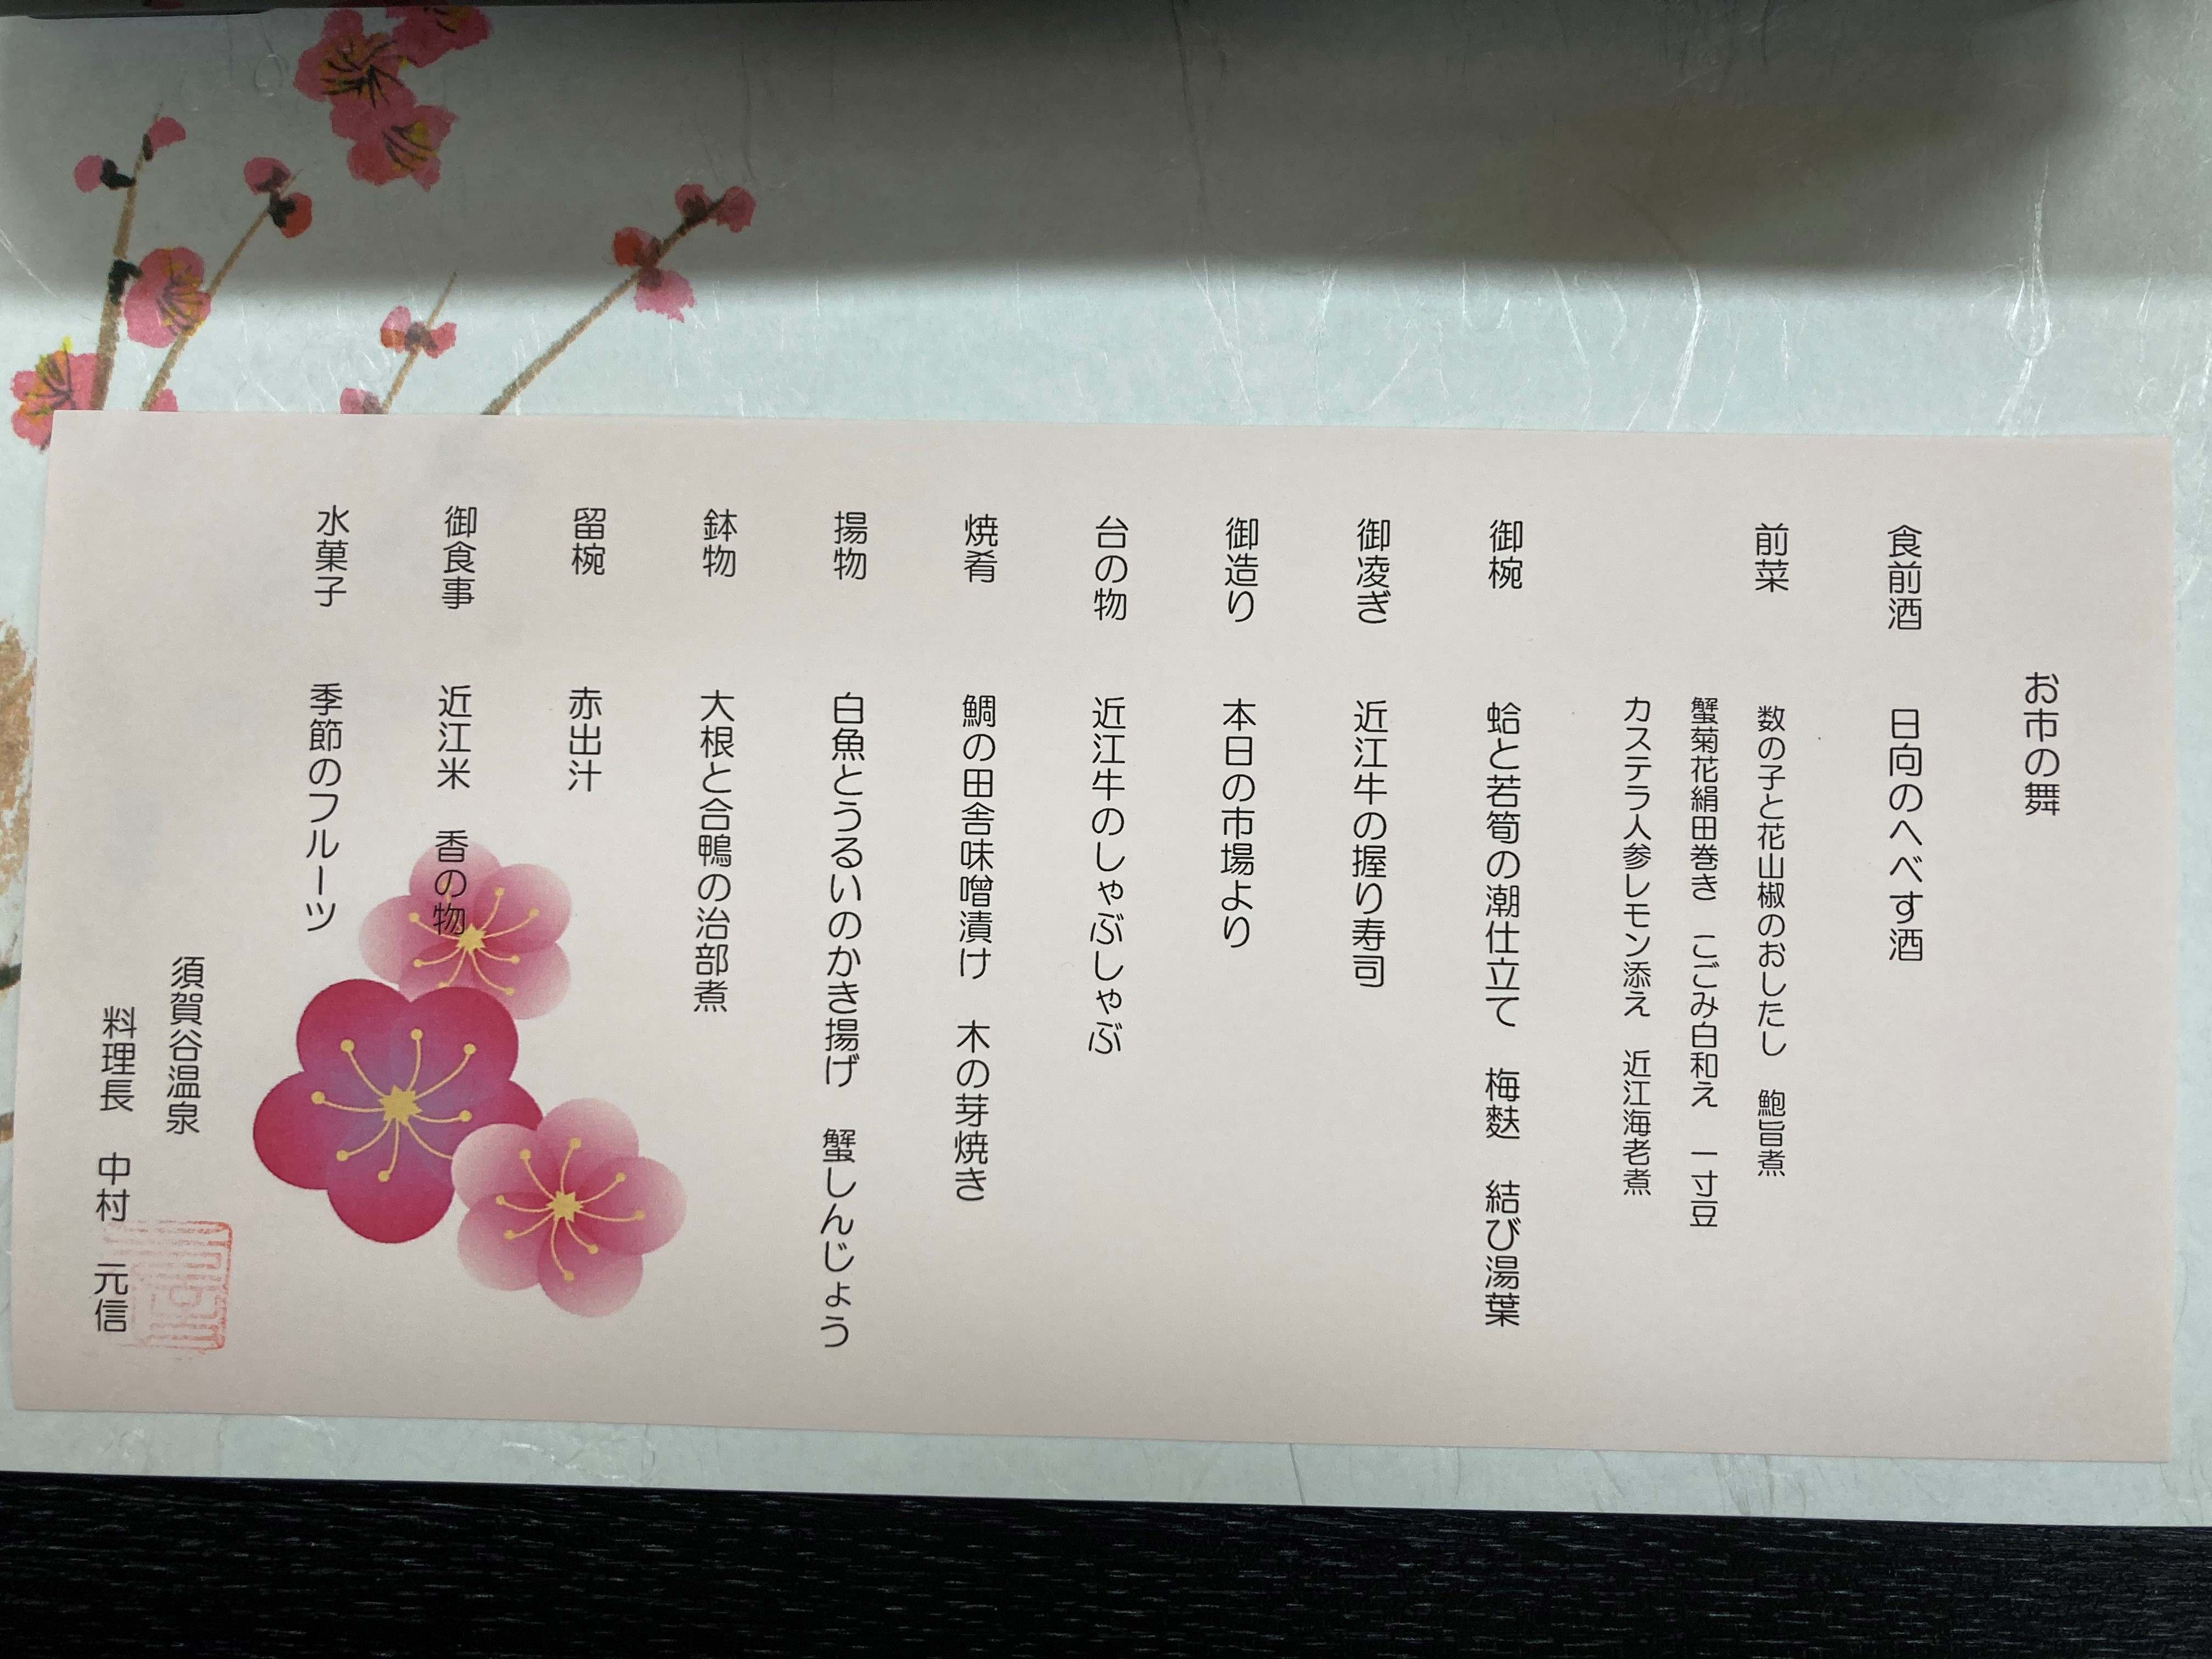 お市の舞
食前酒　日向のへべす酒
前菜　数の子と花山椒のおしたし　鮑旨煮
蟹菊花絹田巻き　こごみ白和え　一寸豆
カステラ人参レモン添え　近江海老煮
御椀　蛤と若筍の潮仕立て　梅麩　結び湯葉
御凌ぎ　近江牛の握り寿司
御造り　本日の市場より
台の物　近江牛のしゃぶしゃぶ
焼肴　鯛の田舎味噌漬け　木の芽焼き
揚物　白魚とうるいのかき揚げ　蟹しんじょう
鉢物　大根と合鴨の治部煮
留椀　赤出汁
御食事　近江米　香の物
水菓子　季節のフルーツ
須賀谷温泉
料理長　中村　元信